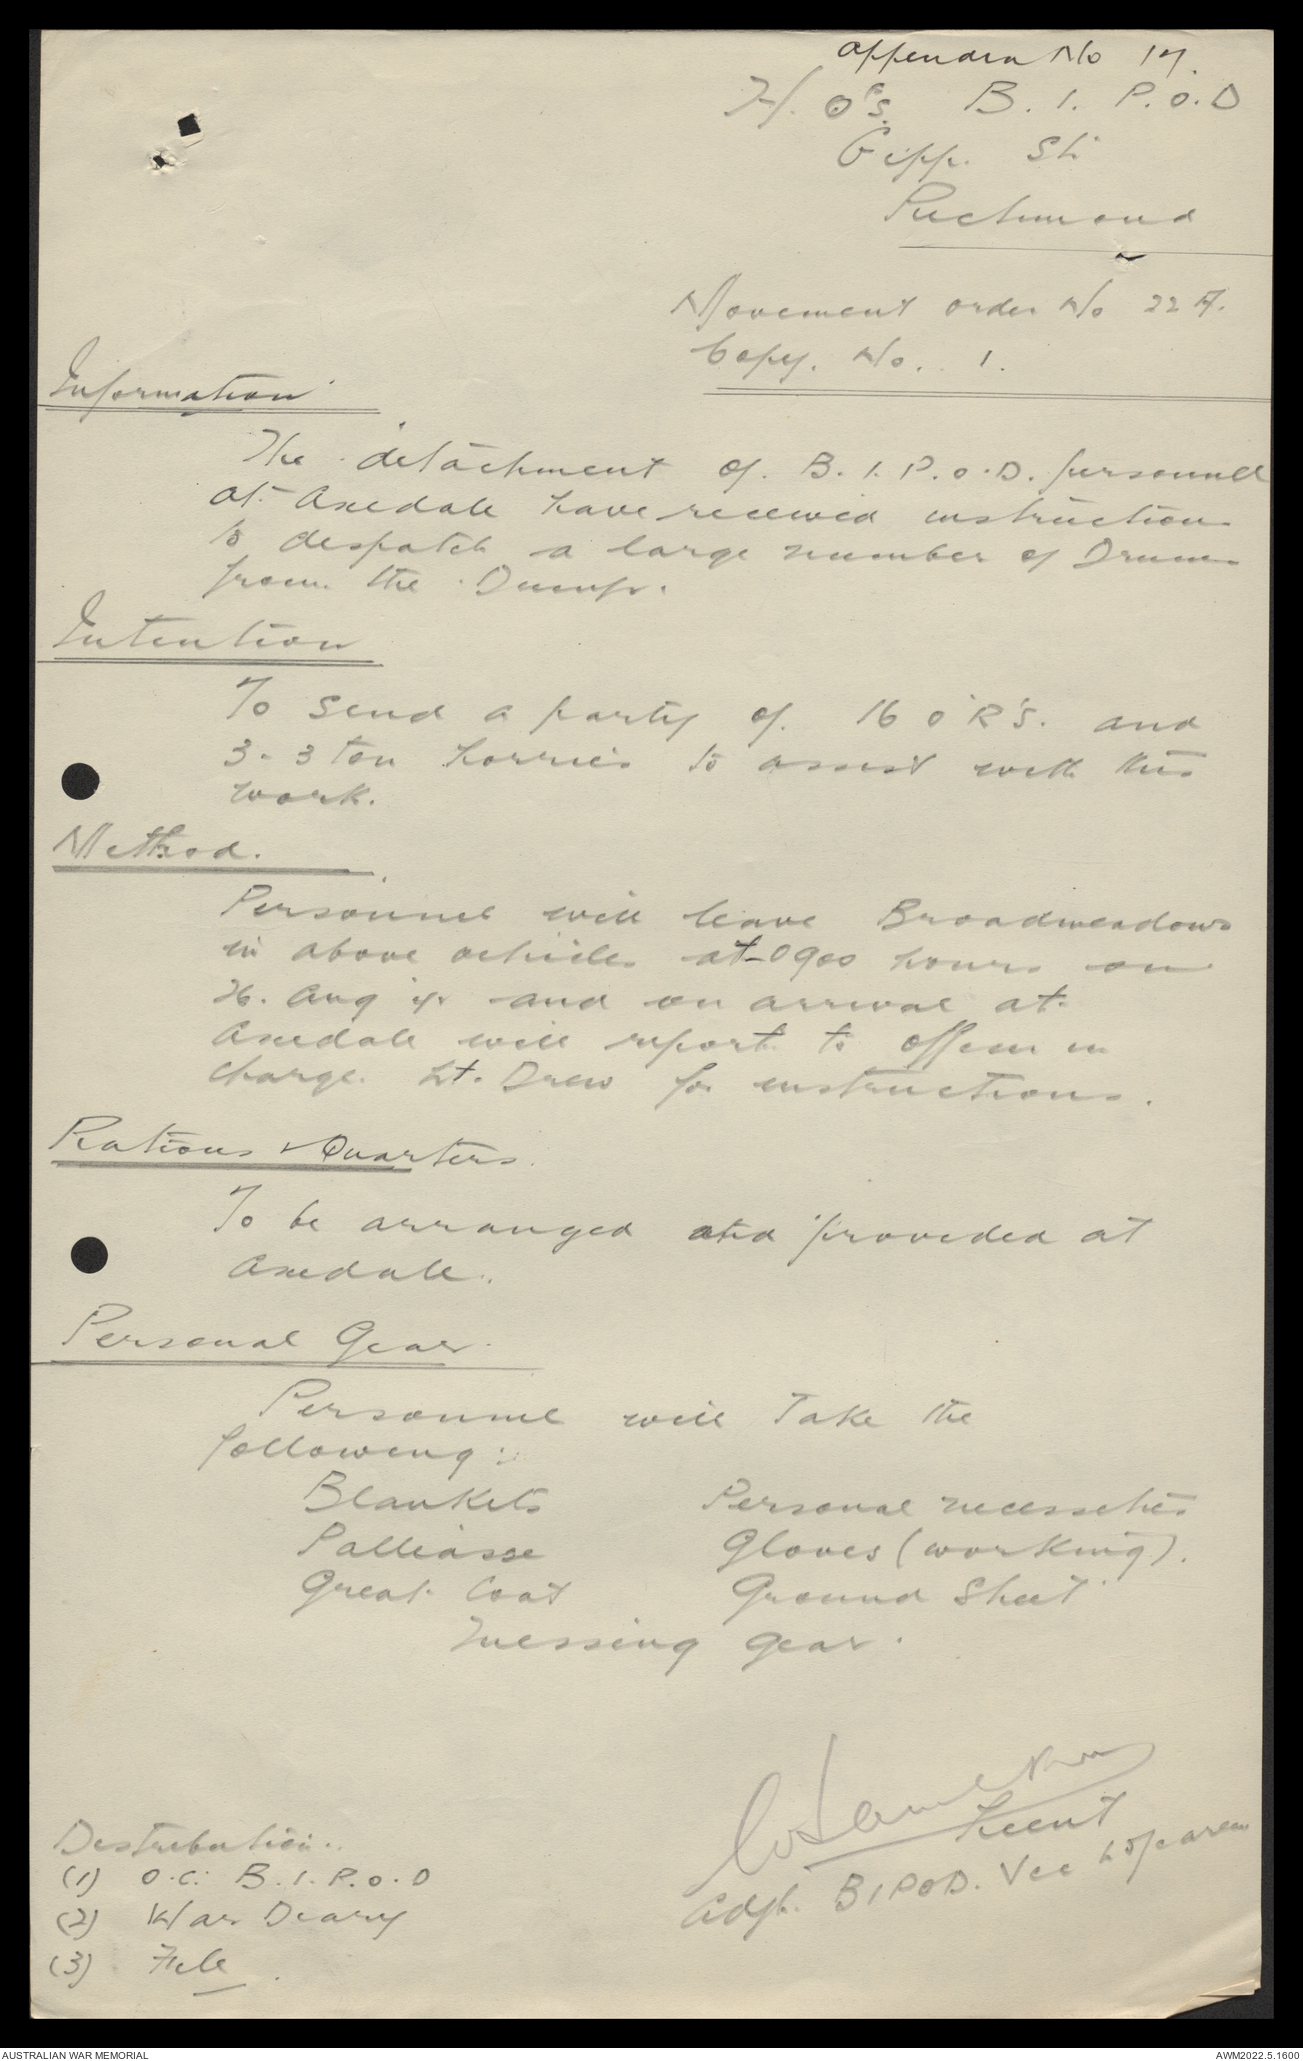 Appendix No 17.
H. Q's. B. I. P. O. D
Gipp. St
Richmond
Movement order No 22 A.
Copy. No. 1.
Information
The detachment of. B. I. P. O. D. personnel
at Axedale have received instructions
to despatch a large number of Drums
from the Dump.
Intention
To send a party of. 16 O'R'S. and
3-3 ton Lorries to assist with this
work.
Method.
Personnel will leave Broadmeadows
in above vehicles at 0900 hours on
26. Aug and on arrival at
Axedale will report to officer in
charge. Lt. Drew for instructions.
Rations & Quarters.
To be arranged and provided at
Axedale.
Personal Gear.
Personnel will Take the
following:
Blankets Personal necesseties
Palliasse Gloves (working).
Great Coat Ground Sheet
Messing Gear.
Lieut
Adjt. B I P O D. Vic L of C area
Distribution.
(1) O.C. B. I. P. O. D
(2) War Diary
(3) File
AUSTRALIAN WAR MEMORIAL
AWM2022.5.1600